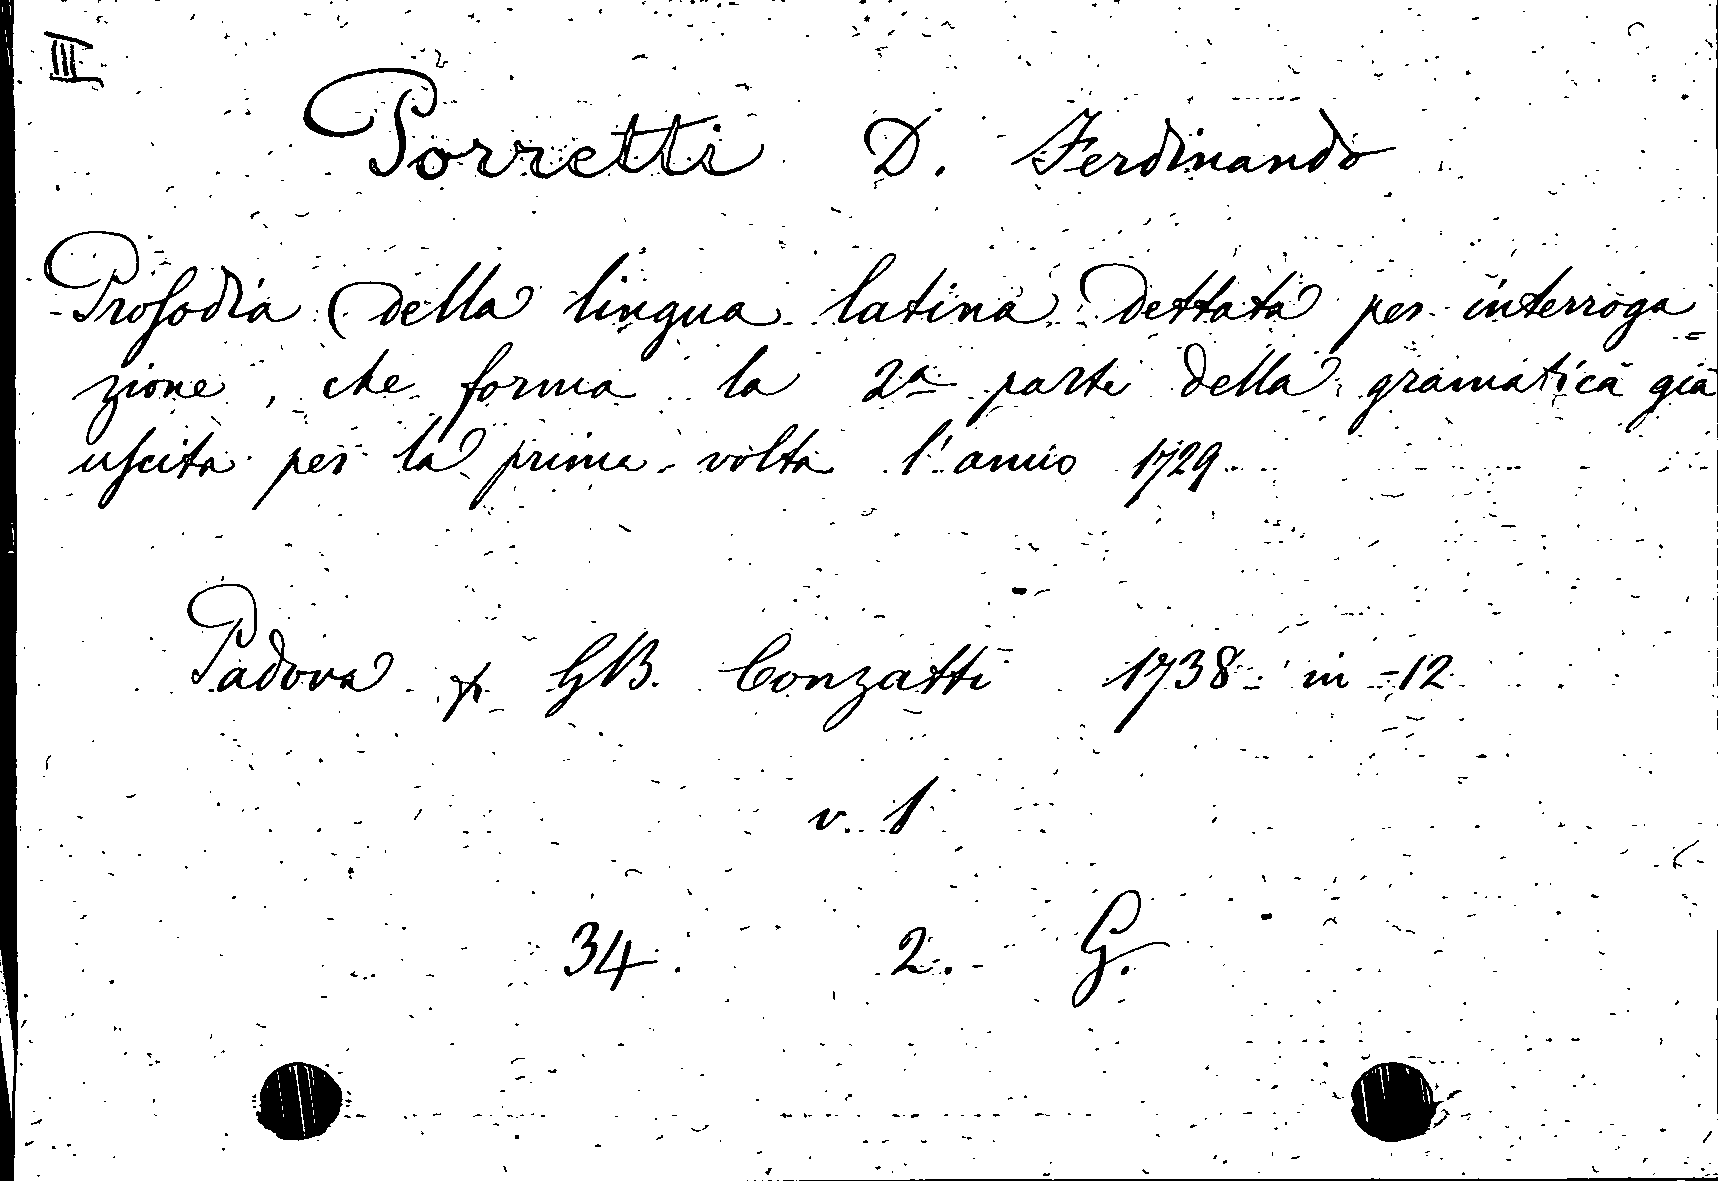 III
Porretti D. Ferdinando
Prosodia della lingua latina dettata per interroga=
zione, che forma la 2a parte della gramatica già
uscita per la prima volta l'anno 1729
Padova p. GB. Conzatti 1738 in -12
v. 1
34. 2. G.